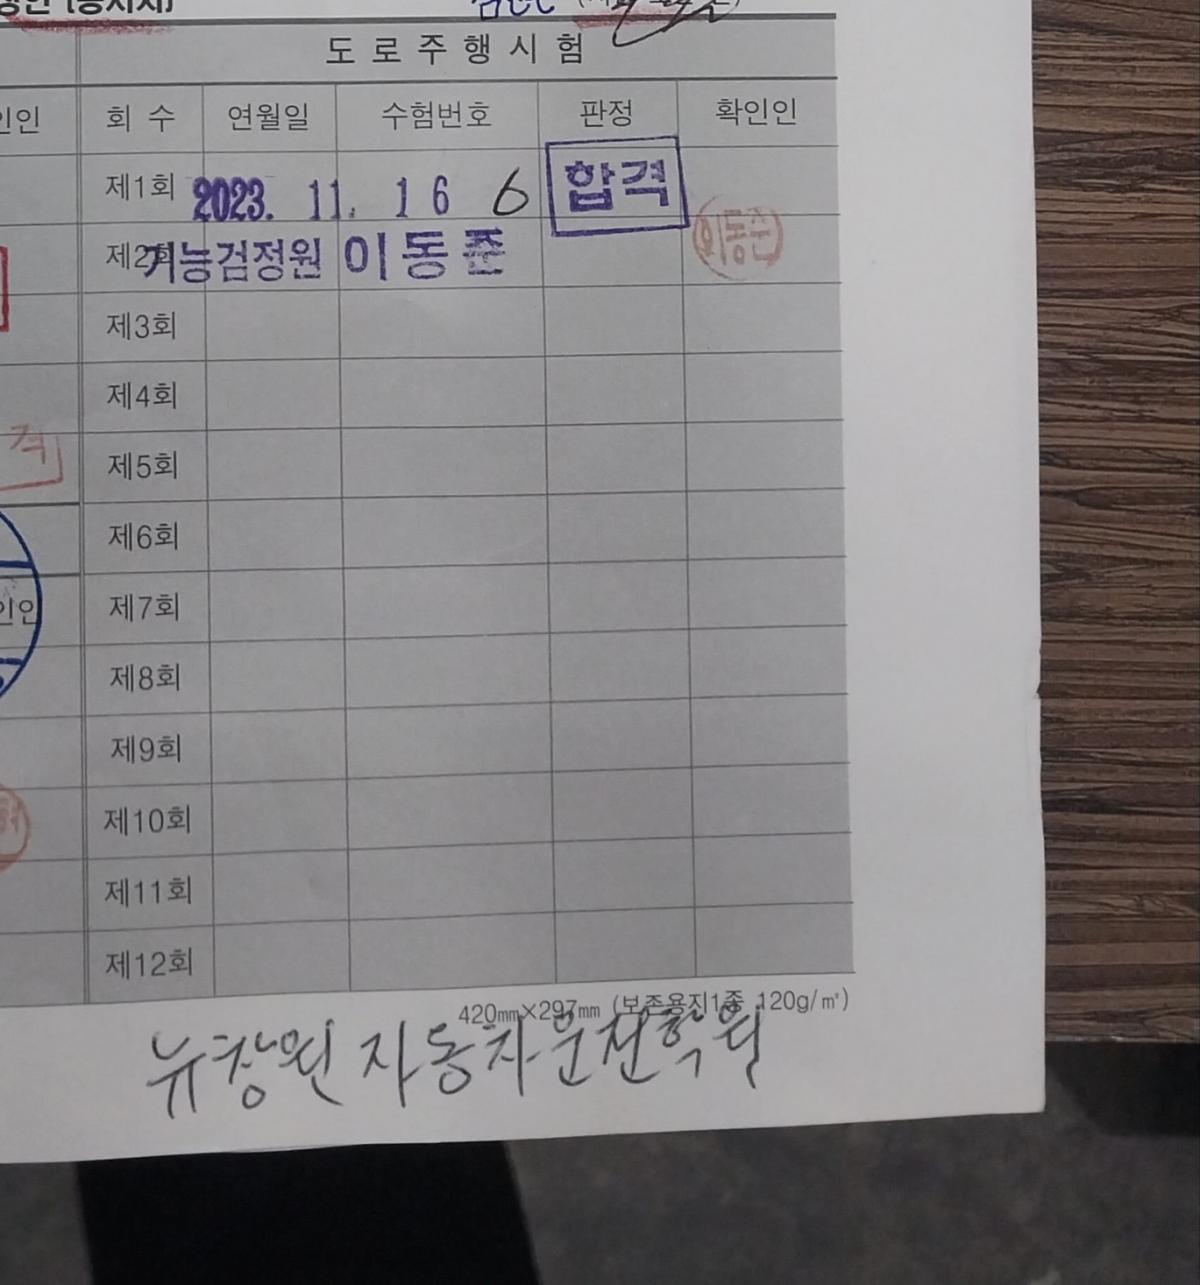 도로주행시험
인인 회 수 연월일 수험번호 판정 확인인
제1회 2023. 11. 16 6 합격
제2회 기능검정원 이동준 이동준
제3회
제4회
격 제5회
제6회
인인 제7회
제8회
제9회
제10회
제11회
제12회
420㎜×297㎜ (보존용지1종 120g/㎡)
뉴창원 자동차운전학원